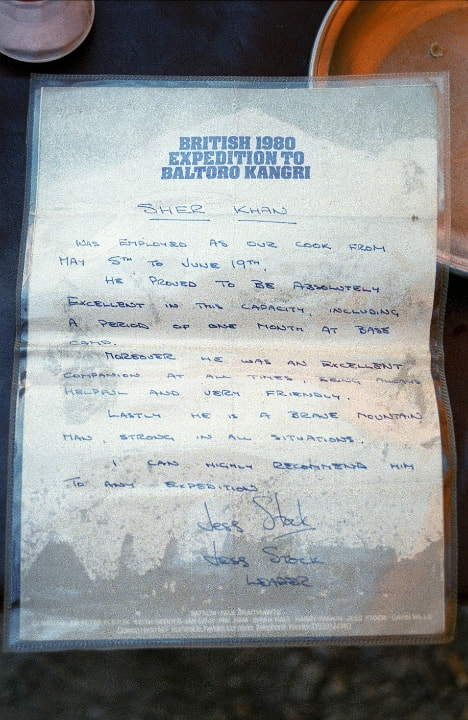 BRITISH 1980
EXPEDITION TO
BALTORO KANGRI
SHER KHAN
WAS EMPLOYED AS OUR COOK FROM
MAY 5TH TO JUNE 19TH.
HE PROVED TO BE ABSOLUTELY
EXCELLENT IN THIS CAPACITY, INCLUDING
A PERIOD OF ONE MONTH AT BASE
CAMP.
MOREOVER HE WAS AN EXCELLENT
COMPANION AT ALL TIMES, BEING ALWAYS
HELPFUL AND VERY FRIENDLY.
LASTLY HE IS A BRAVE MOUNTAIN
MAN, STRONG IN ALL SITUATIONS.
I CAN HIGHLY RECOMMEND HIM
TO ANY EXPEDITION
Jess Stock
JESS STOCK
LEADER
JESS STOCK